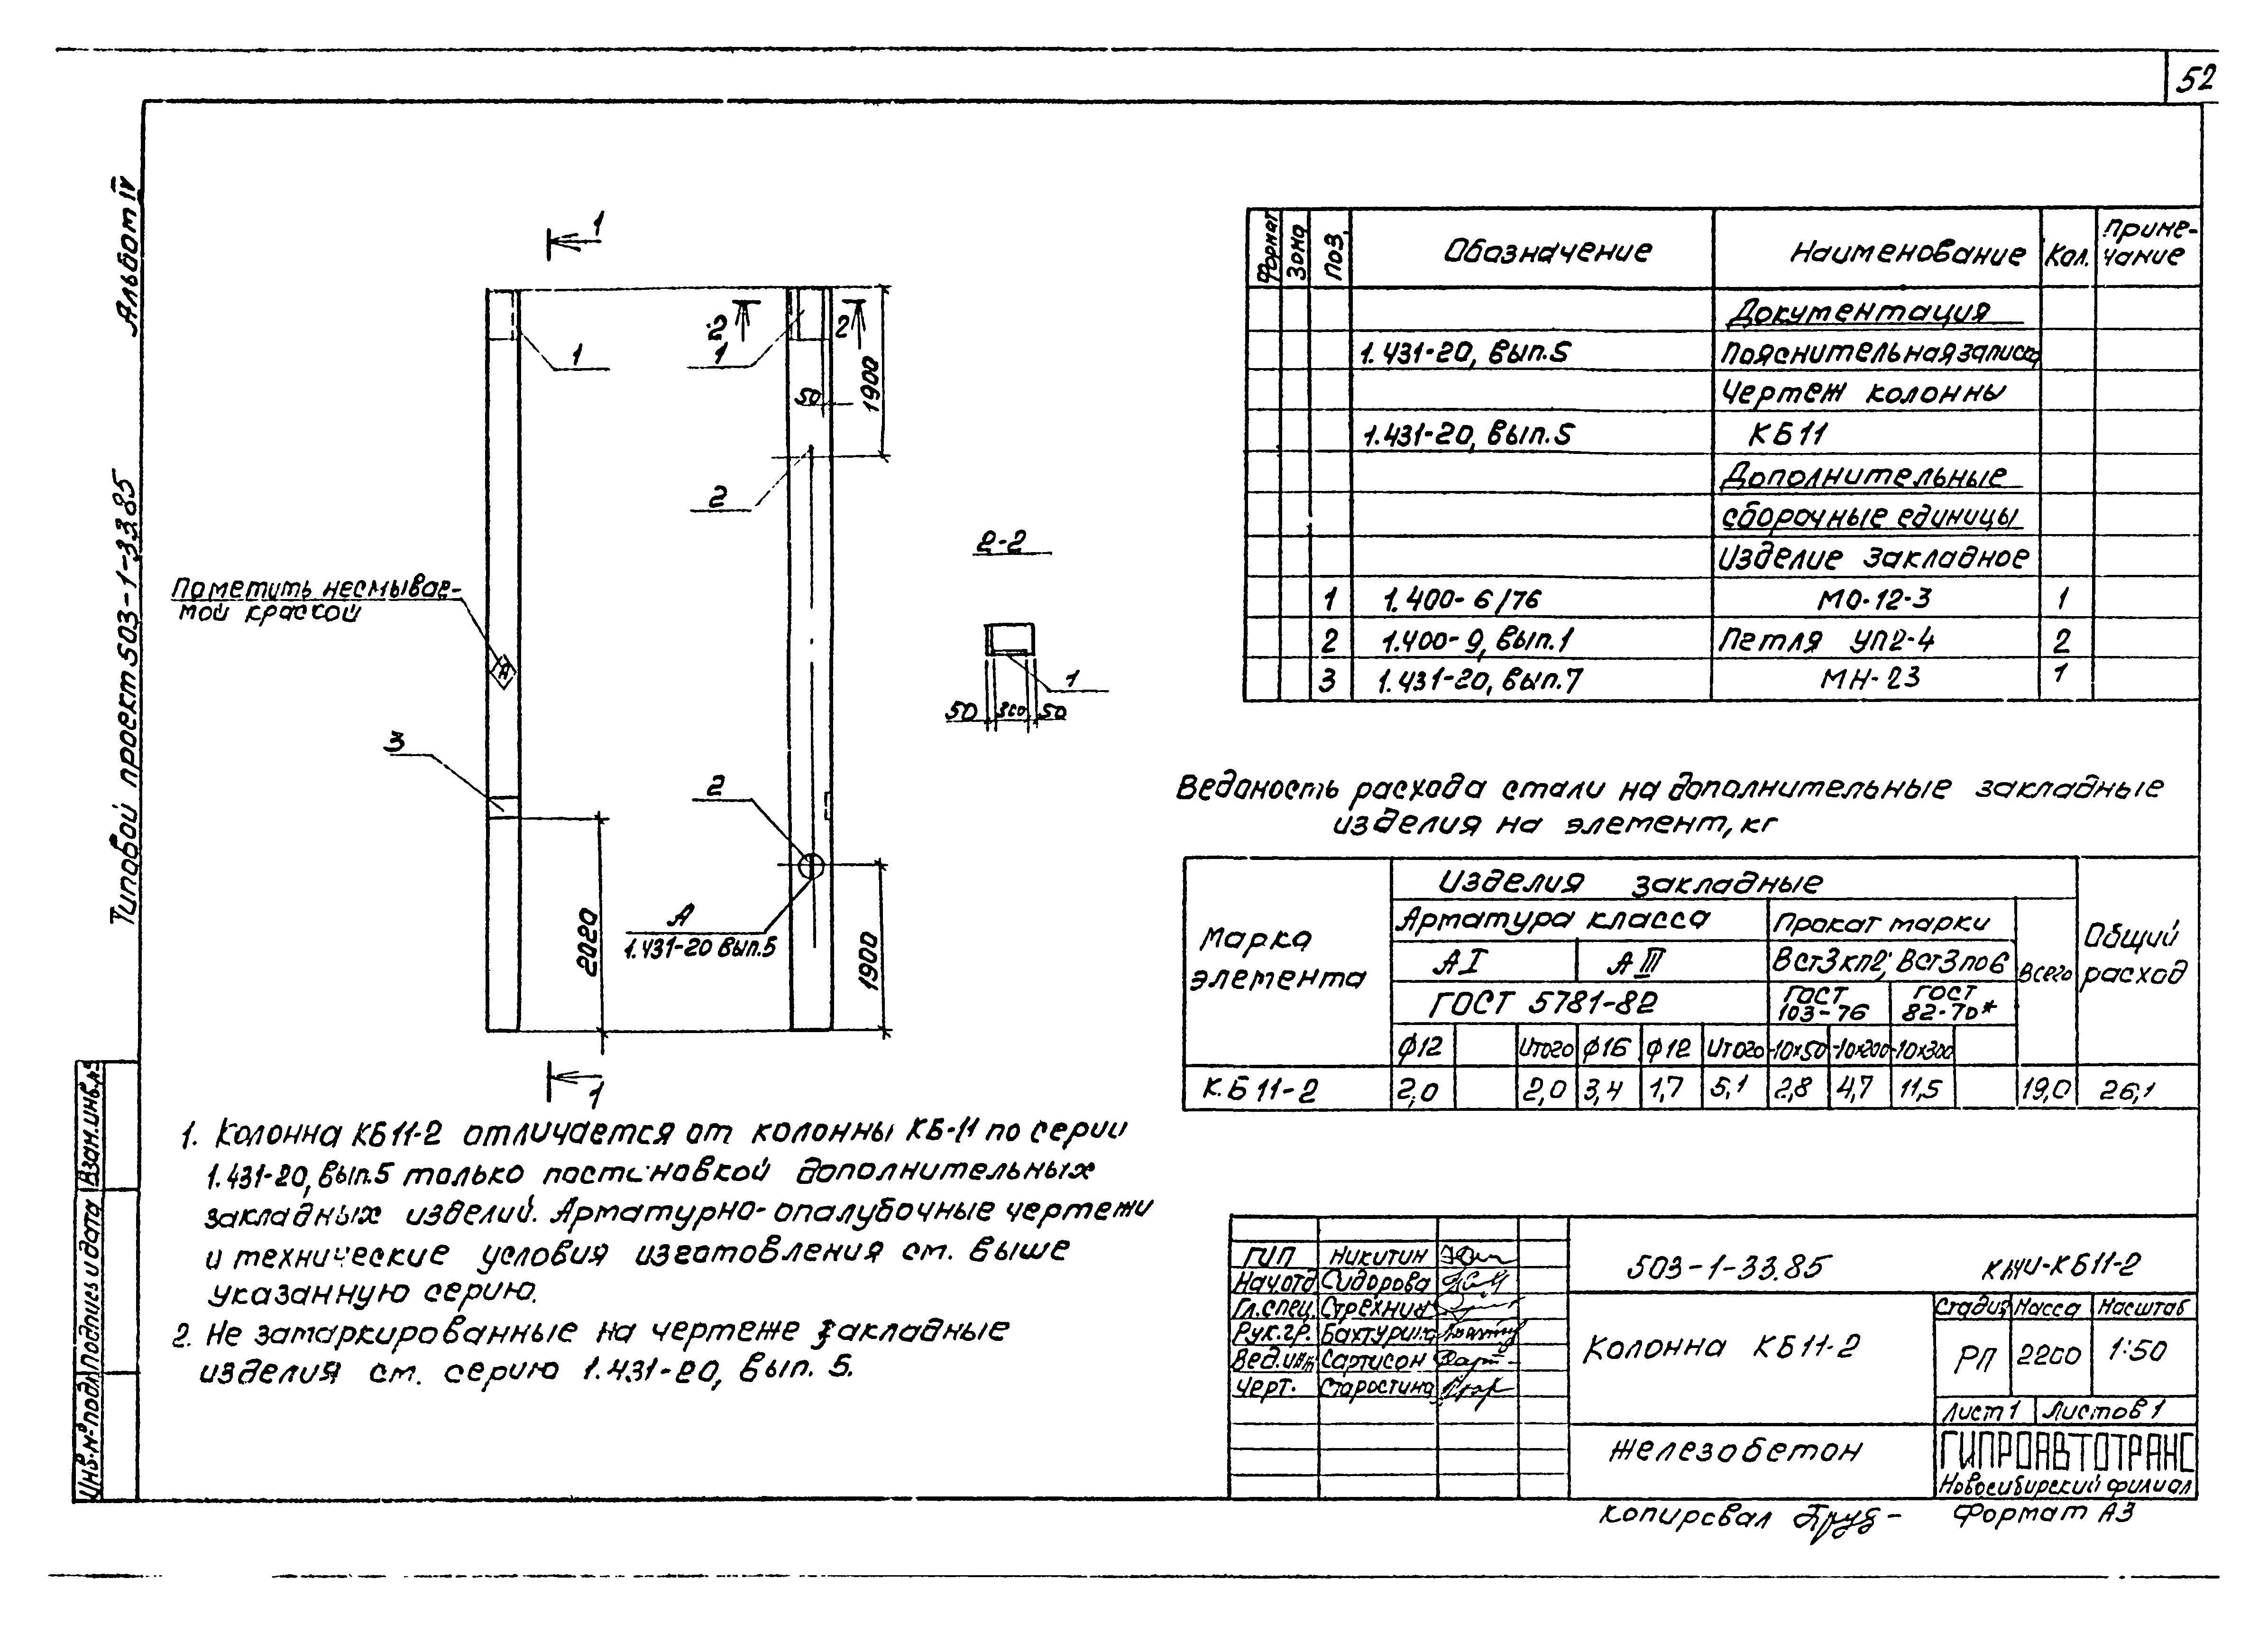 52
Альбом IV
Типовой проект 503-1-33.85
1
1
2
2
1
1900
50
2
2-2
Пометить несмывае-
мой краской
1
50
300
50
3
2
2020
А
1.431-20 Вып.5
1900
1
Формат
Зона
Поз.
Обозначение
Наименование
Кол.
Приме-
чание
Документация
1.431-20, вып.5
Пояснительная записка
Чертеж колонны
1.431-20, вып.5
КБ11
Дополнительные
сборочные единицы
Изделие закладное
1 1.400-6/76 МО-12-3 1
2 1.400-9, вып.1 Петля УП2-4 2
3 1.431-20, вып.7 МН-23 1
Ведомость расхода стали на дополнительные закладные
изделия на элемент, кг
Марка
элемента
Изделия закладные
Арматура класса
Прокат марки
АI
АIII
ВСт3кп2; ВСт3пс6
Всего
Общий
расход
ГОСТ 5781-82
ГОСТ
103-76
ГОСТ
82-70*
ф12 Итого ф16 ф12 Итого -10х50 -10х200 -10х300
КБ11-2 2,0 2,0 3,4 1,7 5,1 2,8 4,7 11,5 19,0 26,1
1. Колонна КБ11-2 отличается от колонны КБ-11 по серии
1.431-20, вып.5 только постановкой дополнительных
закладных изделий. Арматурно-опалубочные чертежи
и технические условия изготовления см. выше
указанную серию.
2. Не замаркированные на чертеже закладные
изделия см. серию 1.431-20, вып. 5.
Взам.инв.№
Подпись и дата
Инв.№ подл.
ГИП Никитин
Нач.отд Сидорова
Гл.спец. Стрехнин
Рук.гр. Бахтурина
Вед.инж Сартисон
Черт. Старостина
503-1-33.85 КЖИ-КБ11-2
Колонна КБ11-2
Стадия Масса Масштаб
РП 2200 1:50
Лист 1 Листов 1
Железобетон
ГИПРОАВТОТРАНС
Новосибирский филиал
Копировал
Формат А3